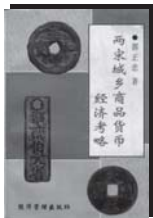 郭正忠 著
两宋城乡商品货币
经济考略
经济管理出版社